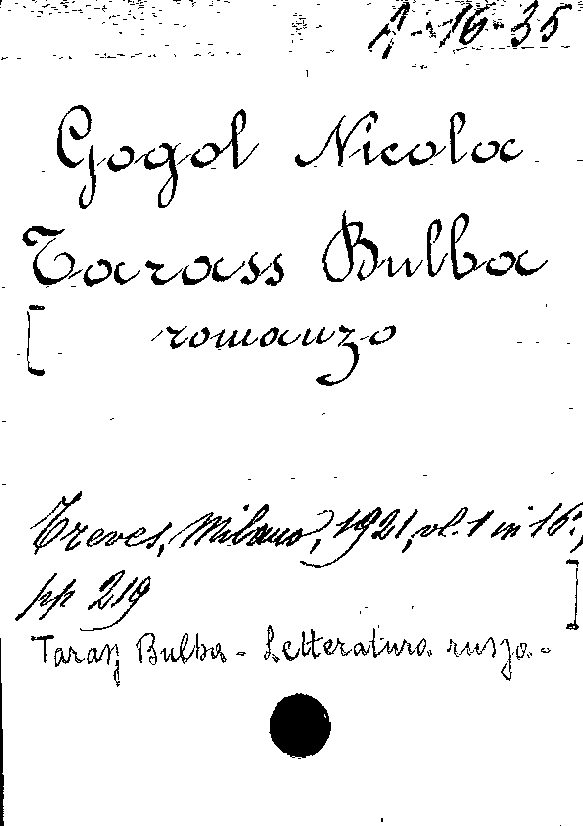 A-16-35
Gogol Nicola
Tarass Bulba
[ romanzo
Treves, Milano, 1921, vl. 1 in 16°,
pp 219 ]
Tarass Bulba - Letteratura russa -